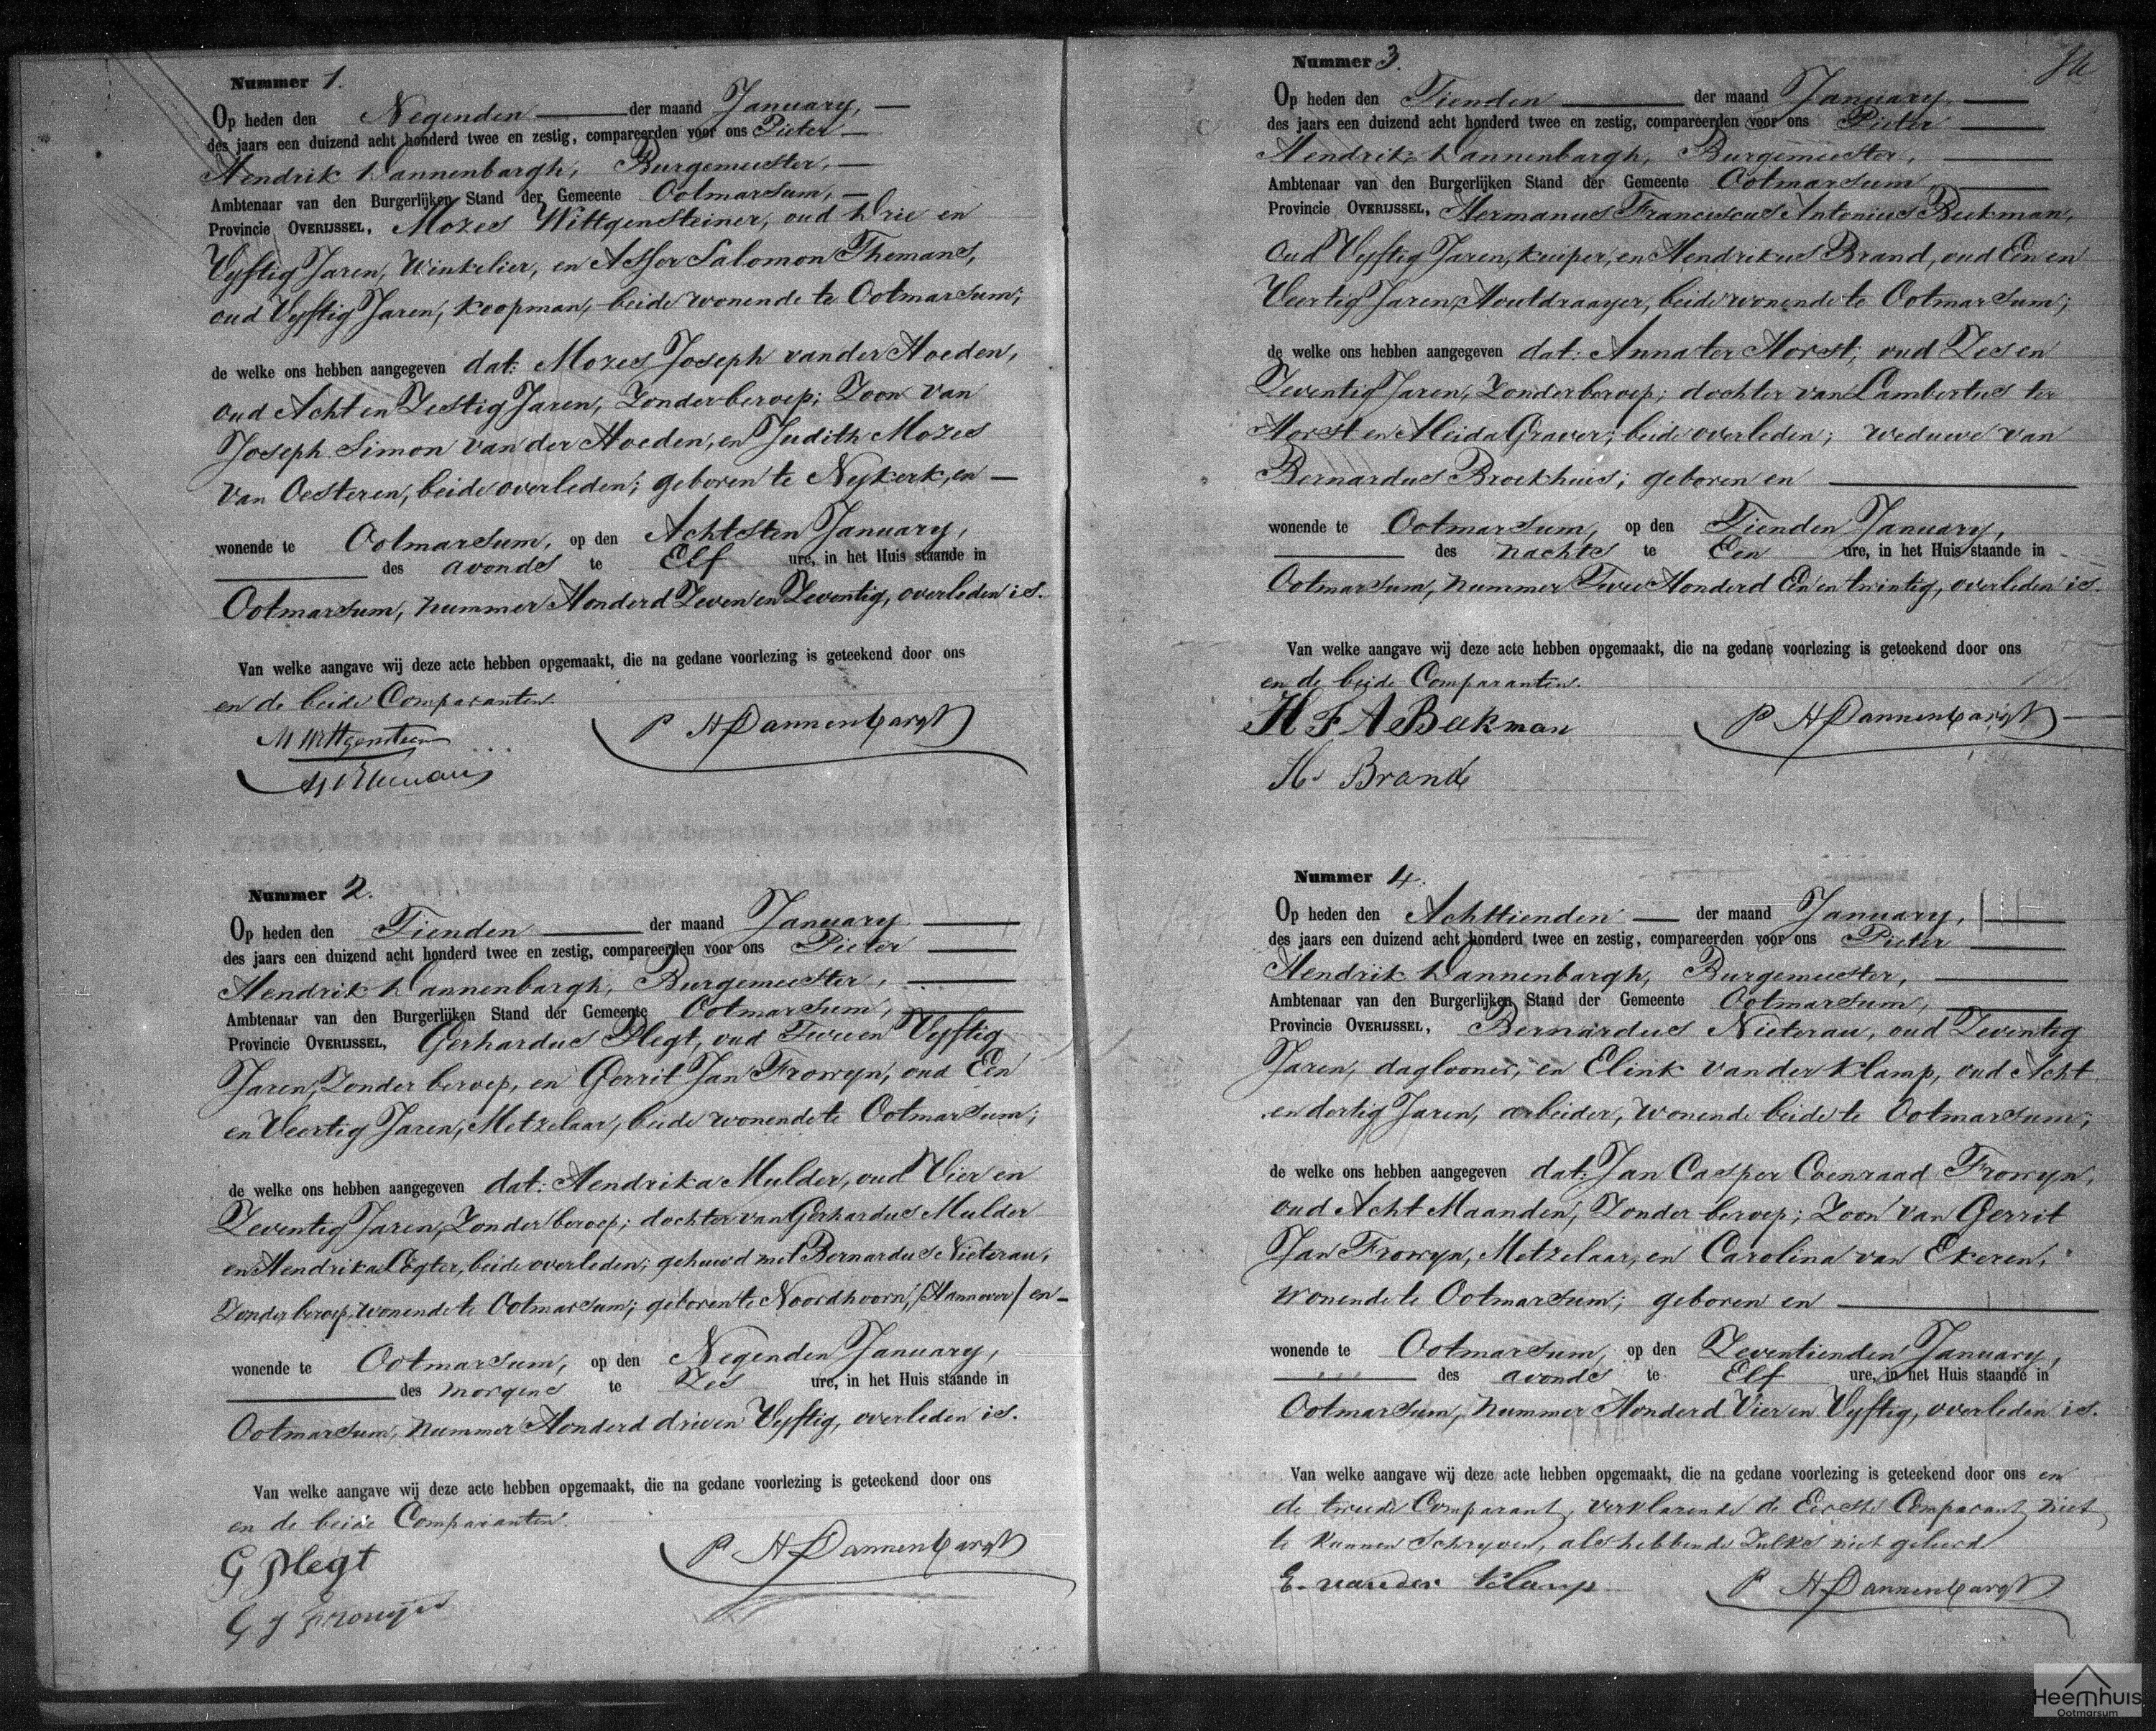 Nummer 1.
Op heden den Negenden der maand January,
des jaars een duizend acht honderd twee en zestig, compareerden voor ons Pieter
Hendrik Dannenbargh, Burgemeester,
Ambtenaar van den Burgerlijken Stand der Gemeente Ootmarsum,
Provincie OVERIJSSEL, Mozes Wittgensteiner, oud Drie en
Vyftig Jaren, Winkelier, en Asser Salomon Themans,
oud Vyftig Jaren, Koopman, beide wonende te Ootmarsum;
de welke ons hebben aangegeven dat: Mozes Joseph van der Hoeden,
oud Acht en Zestig Jaren, Zonder beroep; Zoon van
Joseph Simon van der Hoeden, en Judith Mozes
van Oesteren, beide overleden; geboren te Nykerk, en
wonende te Ootmarsum, op den Achtsten January,
des avonds te Elf ure, in het Huis staande in
Ootmarsum, nummer Honderd Zeven en Zeventig, overleden is.
Van welke aangave wij deze acte hebben opgemaakt, die na gedane voorlezing is geteekend door ons
en de beide Comparanten.
P H Dannenbargh
Nummer 2.
Op heden den Tienden der maand January
des jaars een duizend acht honderd twee en zestig, compareerden voor ons Pieter
Hendrik Dannenbargh, Burgemeester,
Ambtenaar van den Burgerlijken Stand der Gemeente Ootmarsum,
Provincie OVERIJSSEL, Gerhardus Plegt, oud Twee en Vyftig
Jaren, Zonder beroep, en Gerrit Jan Frowyn, oud Een
en Veertig Jaren, Metzelaar, beide wonende te Ootmarsum;
de welke ons hebben aangegeven dat: Hendrika Mulder, oud Vier en
Zeventig Jaren, Zonder beroep; dochter van Gerhardus Mulder
en Hendrika beide overleden; gehuwd met Bernardus Nieterau,
Zonder beroep, wonende te Ootmarsum; geboren te Noordhoorn, /Hannover/ en
wonende te Ootmarsum, op den Negenden January,
des morgens te Zes ure, in het Huis staande in
Ootmarsum, nummer Honderd drie en Vyftig, overleden is.
Van welke aangave wij deze acte hebben opgemaakt, die na gedane voorlezing is geteekend door ons
en de beide Comparanten.
G Plegt
P H Dannenbargh
G J Frowijn
Nummer 3.
Op heden den Tienden der maand January
des jaars een duizend acht honderd twee en zestig, compareerden voor ons Pieter
Hendrik Dannenbargh, Burgemeester,
Ambtenaar van den Burgerlijken Stand der Gemeente Ootmarsum,
Provincie OVERIJSSEL, Hermanus Franciscus Antonius Beekman,
oud Vyftig Jaren, Kuiper, en Hendrikus Brand, oud Een en
Veertig Jaren, Houtdraayer, beide wonende te Ootmarsum;
de welke ons hebben aangegeven dat: Anna ter Horst, oud Zes en
Zeventig Jaren, Zonder beroep; dochter van Lambertus ter
Horst en Aleida Graver; beide overleden; weduwe van
Bernardus Broekhuis; geboren en
wonende te Ootmarsum, op den Tienden January,
des nachts te Een ure, in het Huis staande in
Ootmarsum, nummer Twee Honderd Een en twintig, overleden is.
Van welke aangave wij deze acte hebben opgemaakt, die na gedane voorlezing is geteekend door ons
en de beide Comparanten.
H F A Beekman
P H Dannenbargh
H. Brand
Nummer 4.
Op heden den Achttienden der maand January,
des jaars een duizend acht honderd twee en zestig, compareerden voor ons Pieter
Hendrik Dannenbargh, Burgemeester,
Ambtenaar van den Burgerlijken Stand der Gemeente Ootmarsum,
Provincie OVERIJSSEL, Bernardus Nieterau, oud Zeventig
Jaren, daglooner, en Elink van der Klamp, oud Acht
en dertig Jaren, arbeider, wonende beide te Ootmarsum;
de welke ons hebben aangegeven dat: Jan Casper Coenraad Frowyn,
oud Acht Maanden, Zonder beroep; Zoon van Gerrit
Jan Frowyn, Metzelaar, en Carolina van Ekeren,
wonende te Ootmarsum; geboren en
wonende te Ootmarsum, op den Zeventienden January,
des avonds te Elf ure, in het Huis staande in
Ootmarsum, nummer Honderd Vier en Vyftig, overleden is.
Van welke aangave wij deze acte hebben opgemaakt, die na gedane voorlezing is geteekend door ons en
de tweede Comparant, verklarende de Eerste Comparant niet
te kunnen Schryven, als hebbende Zulks niet geleerd
E. van der Klamp
P H Dannenbargh
Heemhuis
Ootmarsum